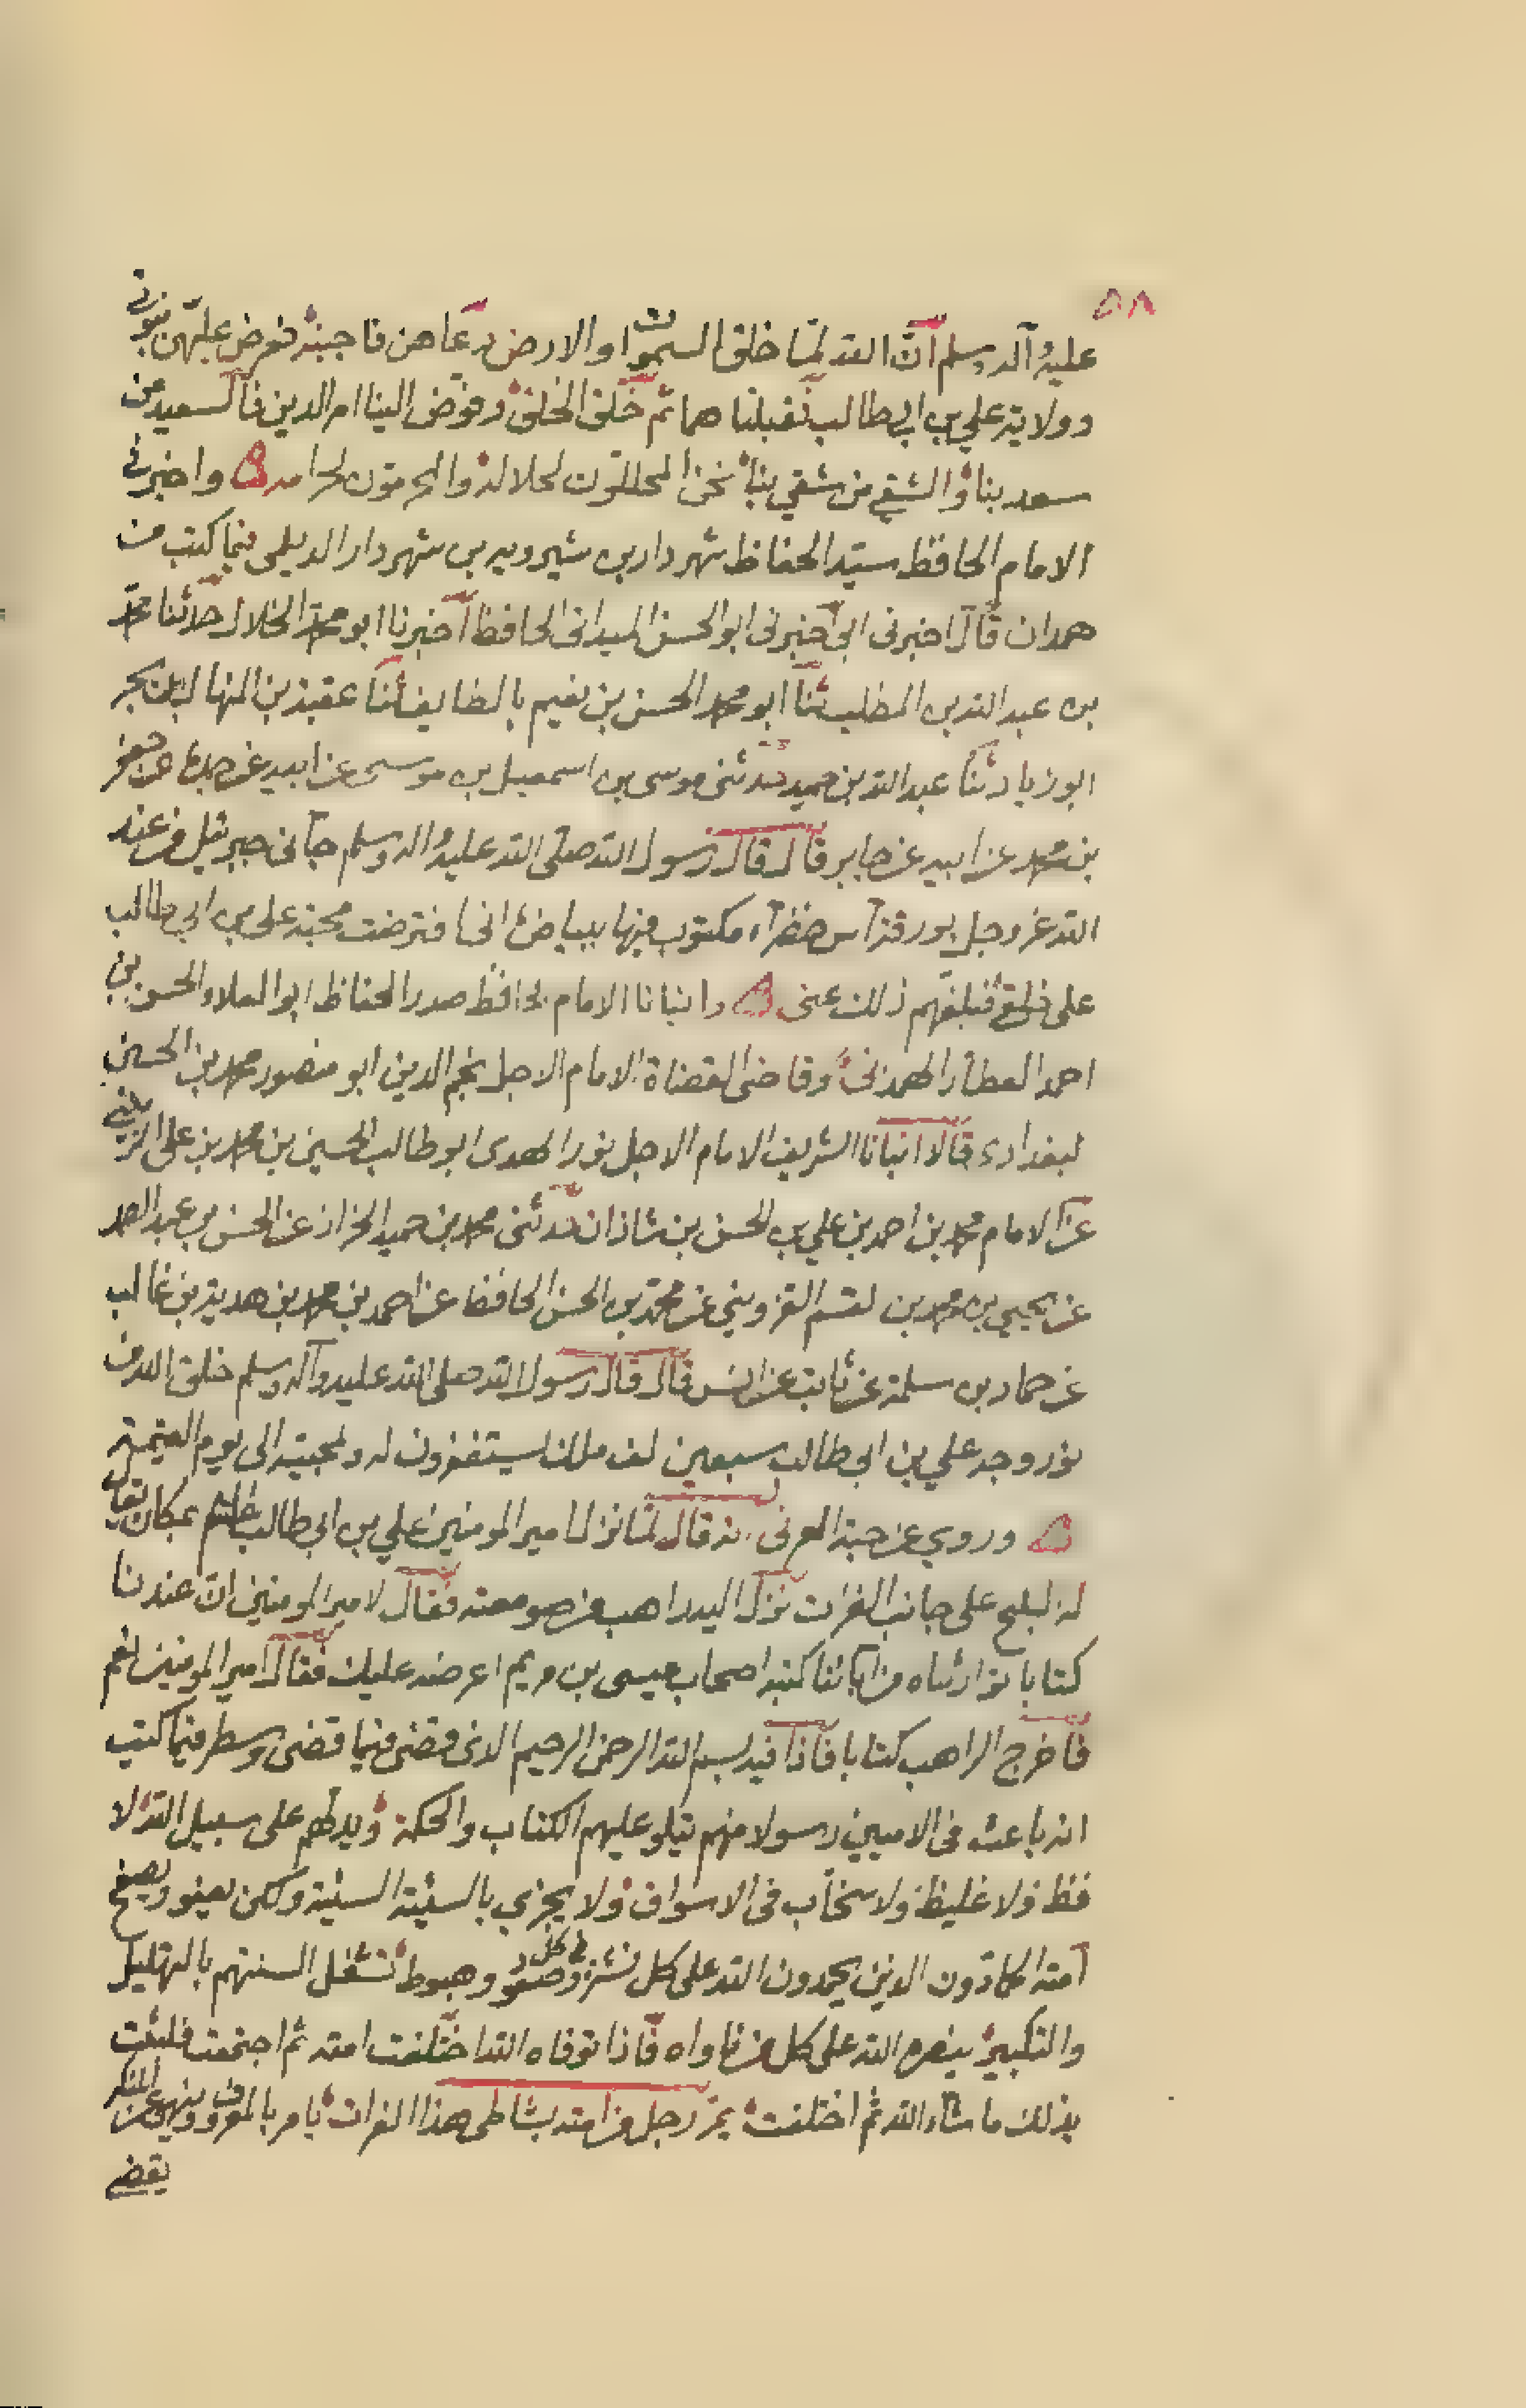 ٥٨
عليه وآله وسلم ان الله لما خلق السموات والارض دعاهن فاجبنه فعرض عليهن نبوتي
وولاية علي بن ابي طالب فقبلنا هما ثم خلق الخلق وفوض الينا امر الدين فالسعيد من
سعد بنا والشقي من شقي بنا نحن المحللون لحلاله والمحرمون لحرامه واخبرني
الامام الحافظ سيد الحفاظ شهردار بن شيرويه بن شهردار الديلمي فيما كتب من
همدان قال اخبرني ابي اخبرني ابو الحسن الميداني الحافظ اخبرنا ابو محمد الخلال حدثنا محمد
بن عبد الله بن المطلب ثنا ابو محمد الحسن بن نعيم بالطايف ثنا عقبة بن المنهال بن بحر
ابو زياد ثنا عبد الله بن حميد حدثني موسى بن اسمعيل بن موسى عن ابيه عن جده عن جعفر
بن محمد عن ابيه عن جابر قال قال رسول الله صلى الله عليه واله وسلم جآني جبرئيل من عند
الله عز وجل بورقة آس خضرآء مكتوب فيها ببياض اني افترضت محبة علي بن ابي طالب
على خلقي فبلغهم ذلك عني وانبانا الامام الحافظ صدر الحفاظ ابو العلاء الحسن بن
احمد العطار الهمداني وقاضى القضاة الامام الاجل نجم الدين ابو منصور محمد بن الحسين
لبغدادى قالا انبانا الشريف الامام الاجل نور الهدى ابو طالب الحسين بن محمد بن علي الزينبي
عن الامام محمد بن احمد بن علي بن الحسن بن شاذان حدثني محمد بن حميد الخزاز عن الحسن بن عبد الصمد
عن يحيى بن محمد بن لقسم القزويني عن محمد بن الحسن الحافظ عن احمد بن محمد بن هدية بن غالب
عن حماد بن سلمة عن ثابت عن انس قال قال رسول الله صلى الله عليه وآله وسلم خلق الله من
نور وجه علي بن ابي طالب سبعين لف ملك يستغفرون له ولمحبيه الى يوم القيمة
وروي عن حبة العرني انه قال لما نزل امير المومنين علي بن ابي طالب بمكان يقال
له البليخ على جانب الفرات نزل اليه راهب من صومعته فقال لامير المومنين ان عندنا
كتابا توارثناه من آبائنا كتبه اصحاب عيسى بن مريم اعرضه عليك فقال امير المومنين نعم
فاخرج الراهب كتابا فاذا فيه بسم الله الرحمن الرحيم الذى قضى فيما قضى وسطر فيما كتب
انه باعث في الاميين رسولا منهم يتلو عليهم الكتاب والحكمة ويدلهم على سبيل الله لا
فظ ولا غليظ ولا سخاب في الاسواق ولا يجزي بالسيئة السيئة ولكن يعفو ويصفح
امته الحمادون الذين يحمدون الله على كل نشز وفي كل صعود وهبوط تشغل السنتهم بالتهليل
والتكبير ينصره الله على كل من ناواه فاذا توفاه الله اختلفت امته ثم اجتمعت فلبثت
بذلك ما شآء الله ثم اختلفت يمر رجل من امته بشاطى هذا الفرات يامر بالمعروف وينهى عن المنكر
يقضي